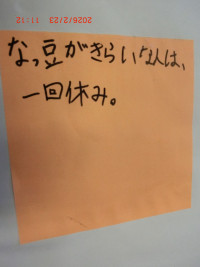 21:11 2026/2/23
なっ豆がきらいな人は、
一回休み。